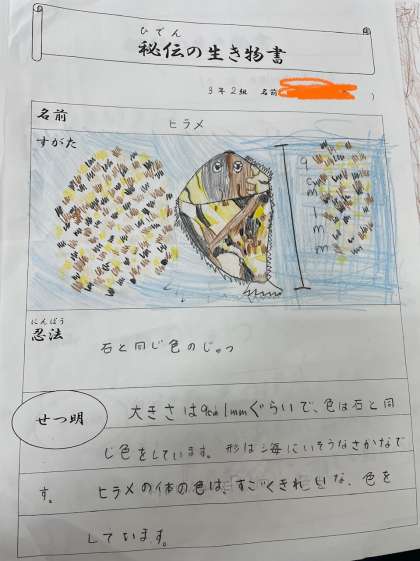 ひでん
秘伝の生き物書
3年2組 名前( )
名前
ヒラメ
すがた
9cm1mm
にんぽう
忍法
石と同じ色のじゅつ
せつ明
大きさは9cm1mmぐらいで、色は石と同
じ色をしています。形は海にいそうなさかなで
す。 ヒラメの体の色は、すごくきれいな、色を
しています。